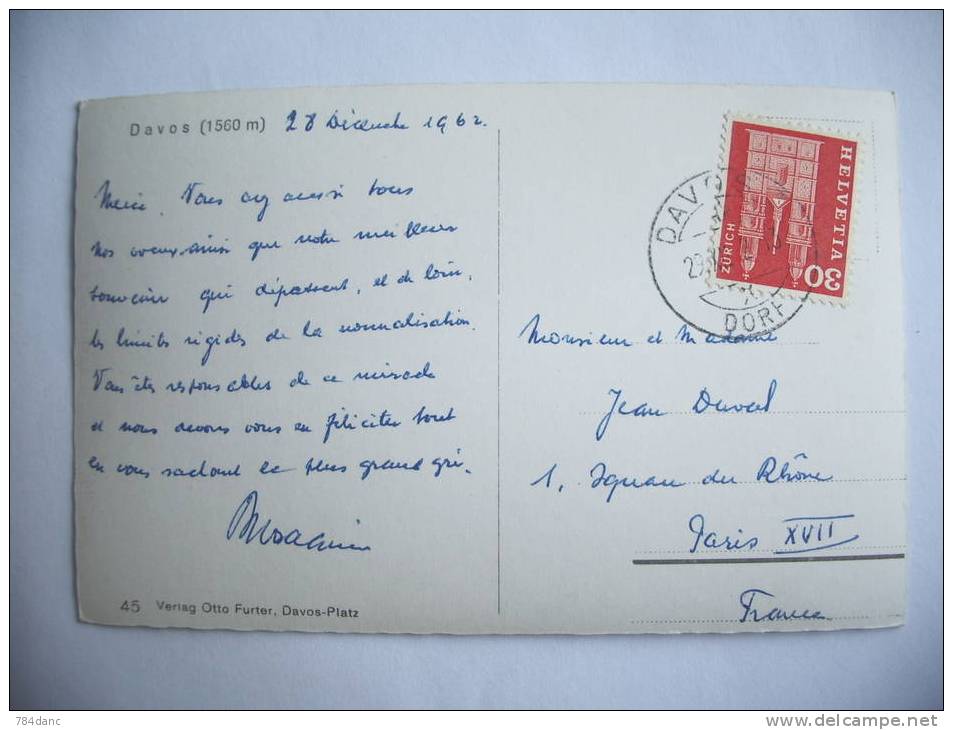 Davos (1560 m) 28 Décembre 1962.
Merci. Vous avez aussi tous
nos voeux ainsi que notre meilleur
souvenir qui dépassent, et de loin,
les limites rigides de la normalisation.
Vous êtes responsables de ce miracle
et nous devons vous en féliciter tout
en vous sachant le plus grand gré.
45 Verlag Otto Furter, Davos-Platz
HELVETIA
ZÜRICH
30
DAVOS
DORF
Monsieur et Madame
Jean Duval
1, Square du Rhône
Paris XVII
France
784danc
www.delcampe.net